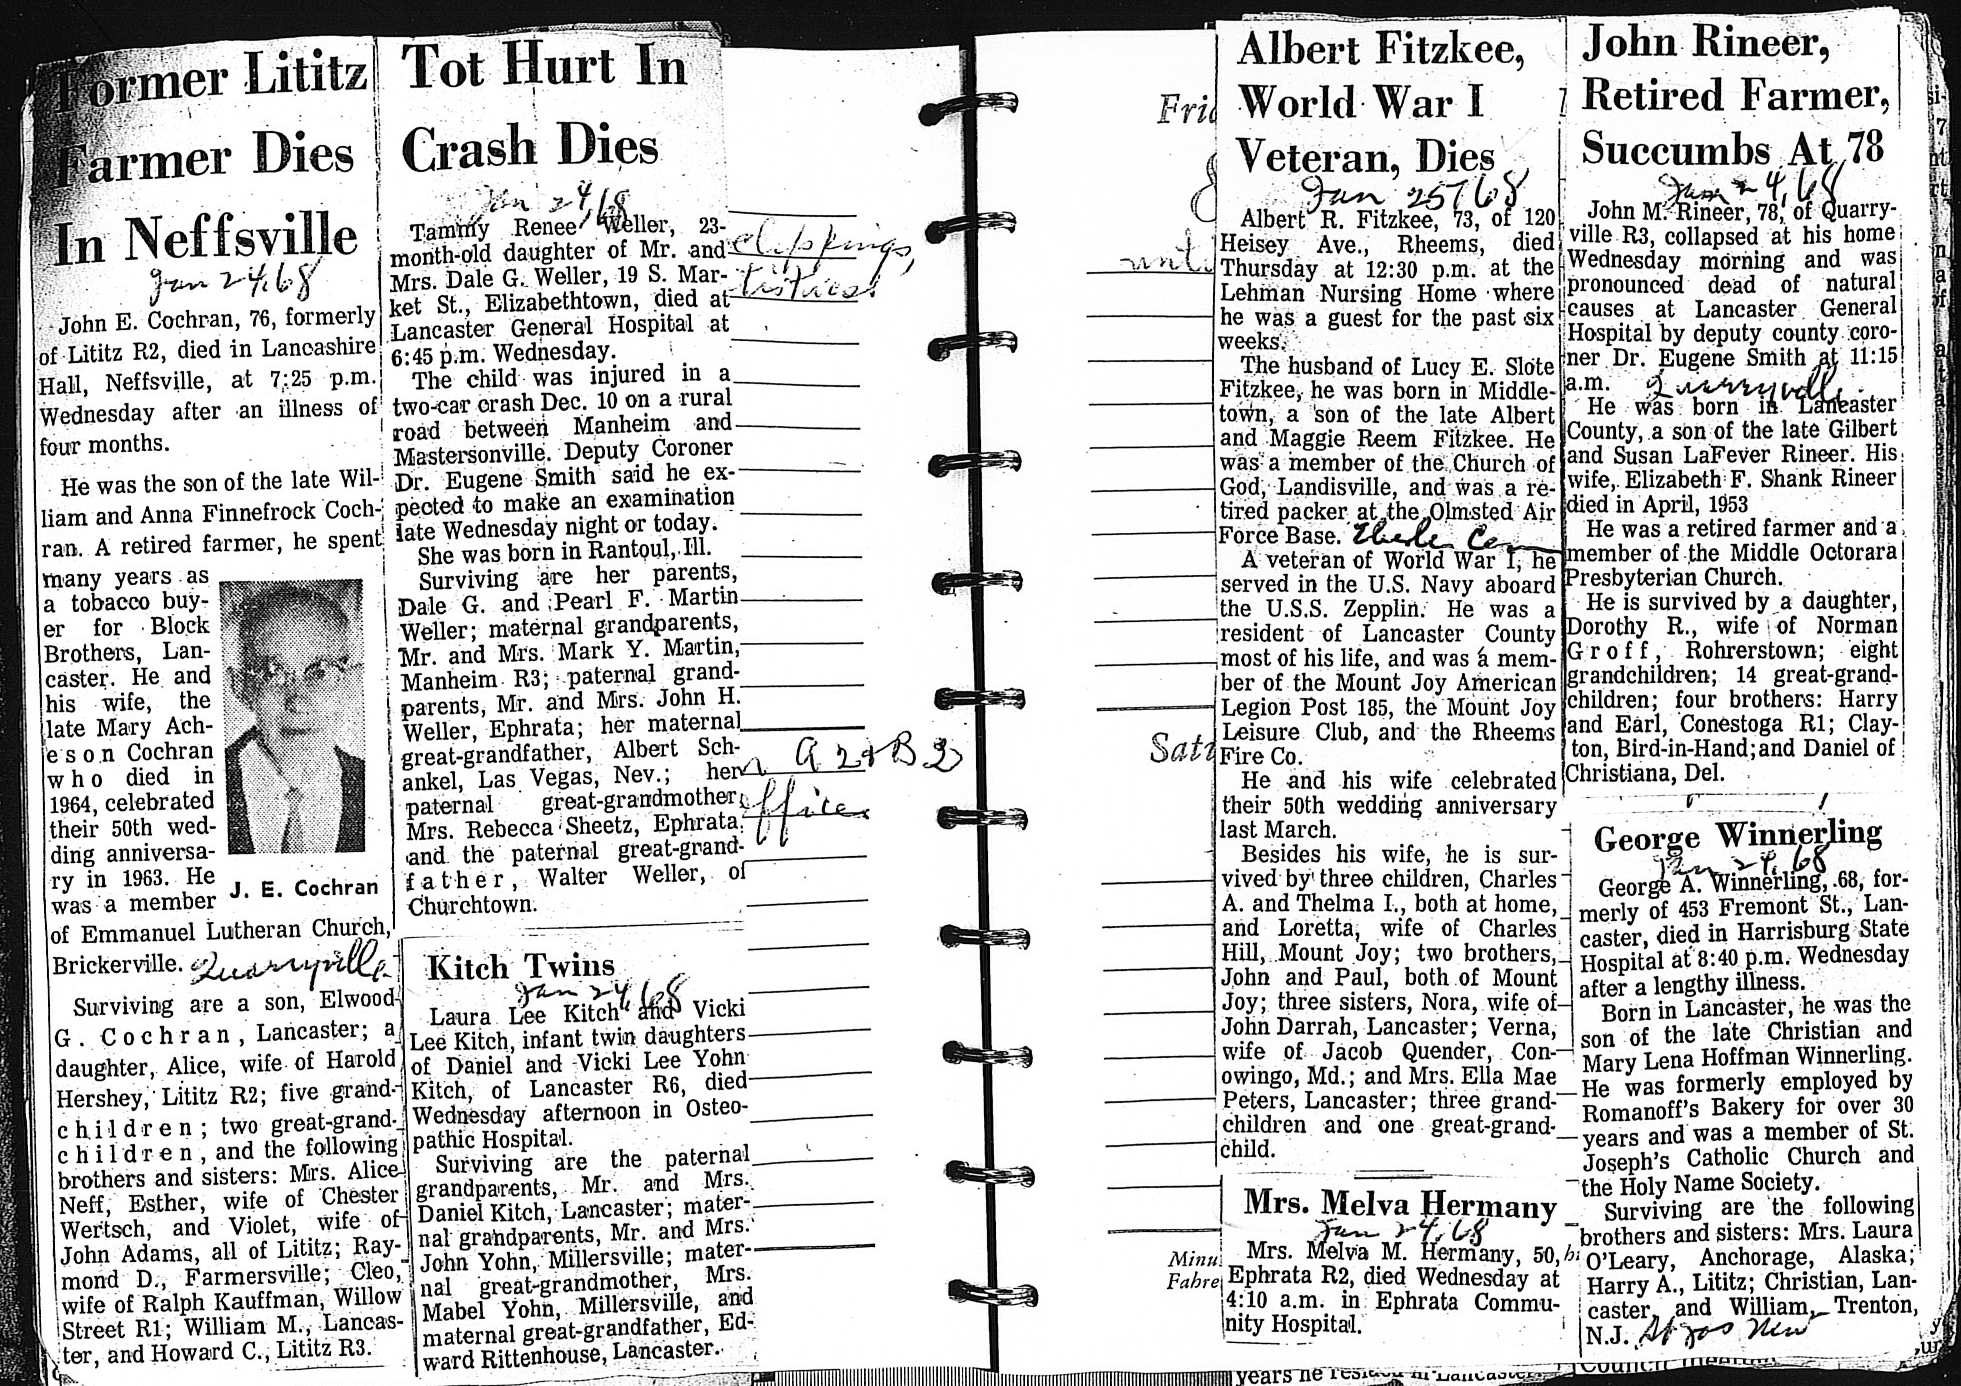 Former Lititz
Farmer Dies
In Neffsville
Jan 24, 68
John E. Cochran, 76, formerly
of Lititz R2, died in Lancashire
Hall, Neffsville, at 7:25 p.m.
Wednesday after an illness of
four months.
He was the son of the late Wil-
liam and Anna Finnefrock Coch-
ran. A retired farmer, he spent
many years as
a tobacco buy-
er for Block
Brothers, Lan-
caster. He and
his wife, the
late Mary Ach-
eson Cochran
who died in
1964, celebrated
their 50th wed-
ding anniversa-
ry in 1963. He
was a member
J. E. Cochran
of Emmanuel Lutheran Church,
Brickerville. Quarryville
Surviving are a son, Elwood
G. Cochran, Lancaster; a
daughter, Alice, wife of Harold
Hershey, Lititz R2; five grand-
children; two great-grand-
children, and the following
brothers and sisters: Mrs. Alice
Neff, Esther, wife of Chester
Wertsch, and Violet, wife of
John Adams, all of Lititz; Ray-
mond D., Farmersville; Cleo,
wife of Ralph Kauffman, Willow
Street R1; William M., Lancas-
ter, and Howard C., Lititz R3.
Tot Hurt In
Crash Dies
Jan 24, 68
Tammy Renee Weller, 23-
month-old daughter of Mr. and
Mrs. Dale G. Weller, 19 S. Mar-
ket St., Elizabethtown, died at
Lancaster General Hospital at
6:45 p.m. Wednesday.
The child was injured in a
two-car crash Dec. 10 on a rural
road between Manheim and
Mastersonville. Deputy Coroner
Dr. Eugene Smith said he ex-
pected to make an examination
late Wednesday night or today.
She was born in Rantoul, Ill.
Surviving are her parents,
Dale G. and Pearl F. Martin
Weller; maternal grandparents,
Mr. and Mrs. Mark Y. Martin,
Manheim R3; paternal grand-
parents, Mr. and Mrs. John H.
Weller, Ephrata; her maternal
great-grandfather, Albert Sch-
ankel, Las Vegas, Nev.; her
paternal great-grandmother
Mrs. Rebecca Sheetz, Ephrata,
and the paternal great-grand-
father, Walter Weller, of
Churchtown.
Kitch Twins
Jan 24, 68
Laura Lee Kitch and Vicki
Lee Kitch, infant twin daughters
of Daniel and Vicki Lee Yohn
Kitch, of Lancaster R6, died
Wednesday afternoon in Osteo-
pathic Hospital.
Surviving are the paternal
grandparents, Mr. and Mrs.
Daniel Kitch, Lancaster; mater-
nal grandparents, Mr. and Mrs.
John Yohn, Millersville; mater-
nal great-grandmother, Mrs.
Mabel Yohn, Millersville, and
maternal great-grandfather, Ed-
ward Rittenhouse, Lancaster.
clippings,
ffice
Fri
Sat
Minu
Fahre
Albert Fitzkee,
World War I
Veteran, Dies
Jan 25, 68
Albert R. Fitzkee, 73, of 120
Heisey Ave., Rheems, died
Thursday at 12:30 p.m. at the
Lehman Nursing Home where
he was a guest for the past six
weeks.
The husband of Lucy E. Slote
Fitzkee, he was born in Middle-
town, a son of the late Albert
and Maggie Reem Fitzkee. He
was a member of the Church of
God, Landisville, and was a re-
tired packer at the Olmsted Air
Force Base.
A veteran of World War I, he
served in the U.S. Navy aboard
the U.S.S. Zepplin. He was a
resident of Lancaster County
most of his life, and was a mem-
ber of the Mount Joy American
Legion Post 185, the Mount Joy
Leisure Club, and the Rheems
Fire Co.
He and his wife celebrated
their 50th wedding anniversary
last March.
Besides his wife, he is sur-
vived by three children, Charles
A. and Thelma I., both at home,
and Loretta, wife of Charles
Hill, Mount Joy; two brothers,
John and Paul, both of Mount
Joy; three sisters, Nora, wife of
John Darrah, Lancaster; Verna,
wife of Jacob Quender, Con-
owingo, Md.; and Mrs. Ella Mae
Peters, Lancaster; three grand-
children and one great-grand-
child.
Mrs. Melva Hermany
Jan 24, 68
Mrs. Melva M. Hermany, 50,
Ephrata R2, died Wednesday at
4:10 a.m. in Ephrata Commu-
nity Hospital.
John Rineer,
Retired Farmer,
Succumbs At 78
Jan 24, 68
John M. Rineer, 78, of Quarry-
ville R3, collapsed at his home
Wednesday morning and was
pronounced dead of natural
causes at Lancaster General
Hospital by deputy county coro-
ner Dr. Eugene Smith at 11:15
a.m. Quarryville
He was born in Lancaster
County, a son of the late Gilbert
and Susan LaFever Rineer. His
wife, Elizabeth F. Shank Rineer
died in April, 1953
He was a retired farmer and a
member of the Middle Octorara
Presbyterian Church.
He is survived by a daughter,
Dorothy R., wife of Norman
Groff, Rohrerstown; eight
grandchildren; 14 great-grand-
children; four brothers: Harry
and Earl, Conestoga R1; Clay-
ton, Bird-in-Hand; and Daniel of
Christiana, Del.
George Winnerling
Jan 24, 68
George A. Winnerling, 68, for-
merly of 453 Fremont St., Lan-
caster, died in Harrisburg State
Hospital at 8:40 p.m. Wednesday
after a lengthy illness.
Born in Lancaster, he was the
son of the late Christian and
Mary Lena Hoffman Winnerling.
He was formerly employed by
Romanoff's Bakery for over 30
years and was a member of St.
Joseph's Catholic Church and
the Holy Name Society.
Surviving are the following
brothers and sisters: Mrs. Laura
O'Leary, Anchorage, Alaska;
Harry A., Lititz; Christian, Lan-
caster, and William, Trenton,
N.J. St Jos New
years he resided in Lancaster